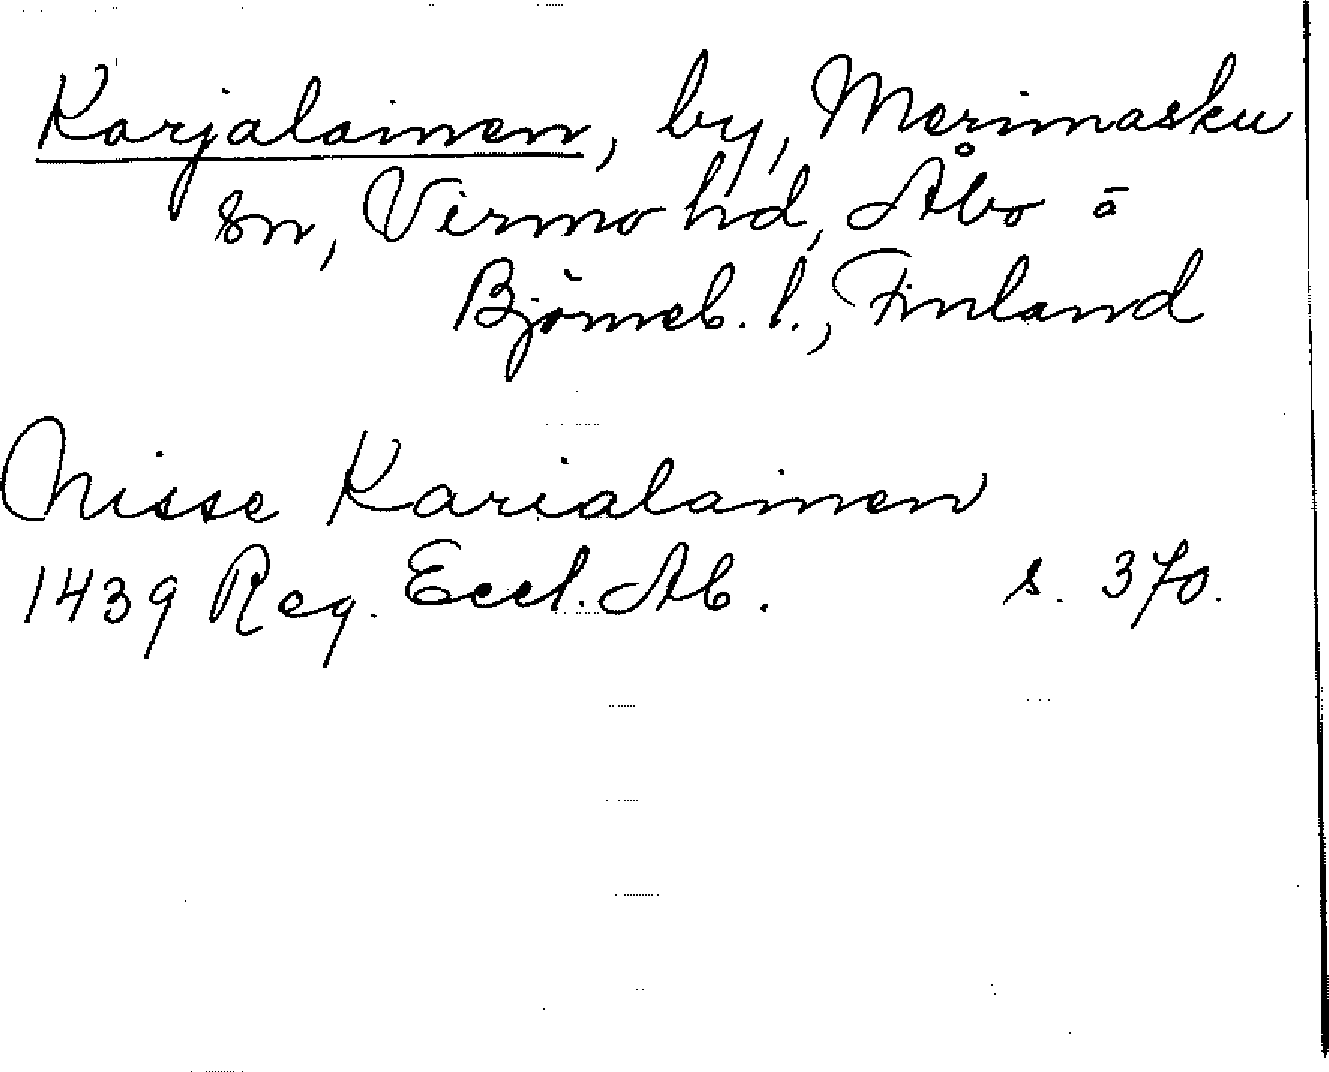 Karjalainen, by, Merimasku
sn, Virmo hd, Åbo o
Björneb. l., Finland
Nisse Karialainen
1439 Reg. Eccl. Ab. s. 370.